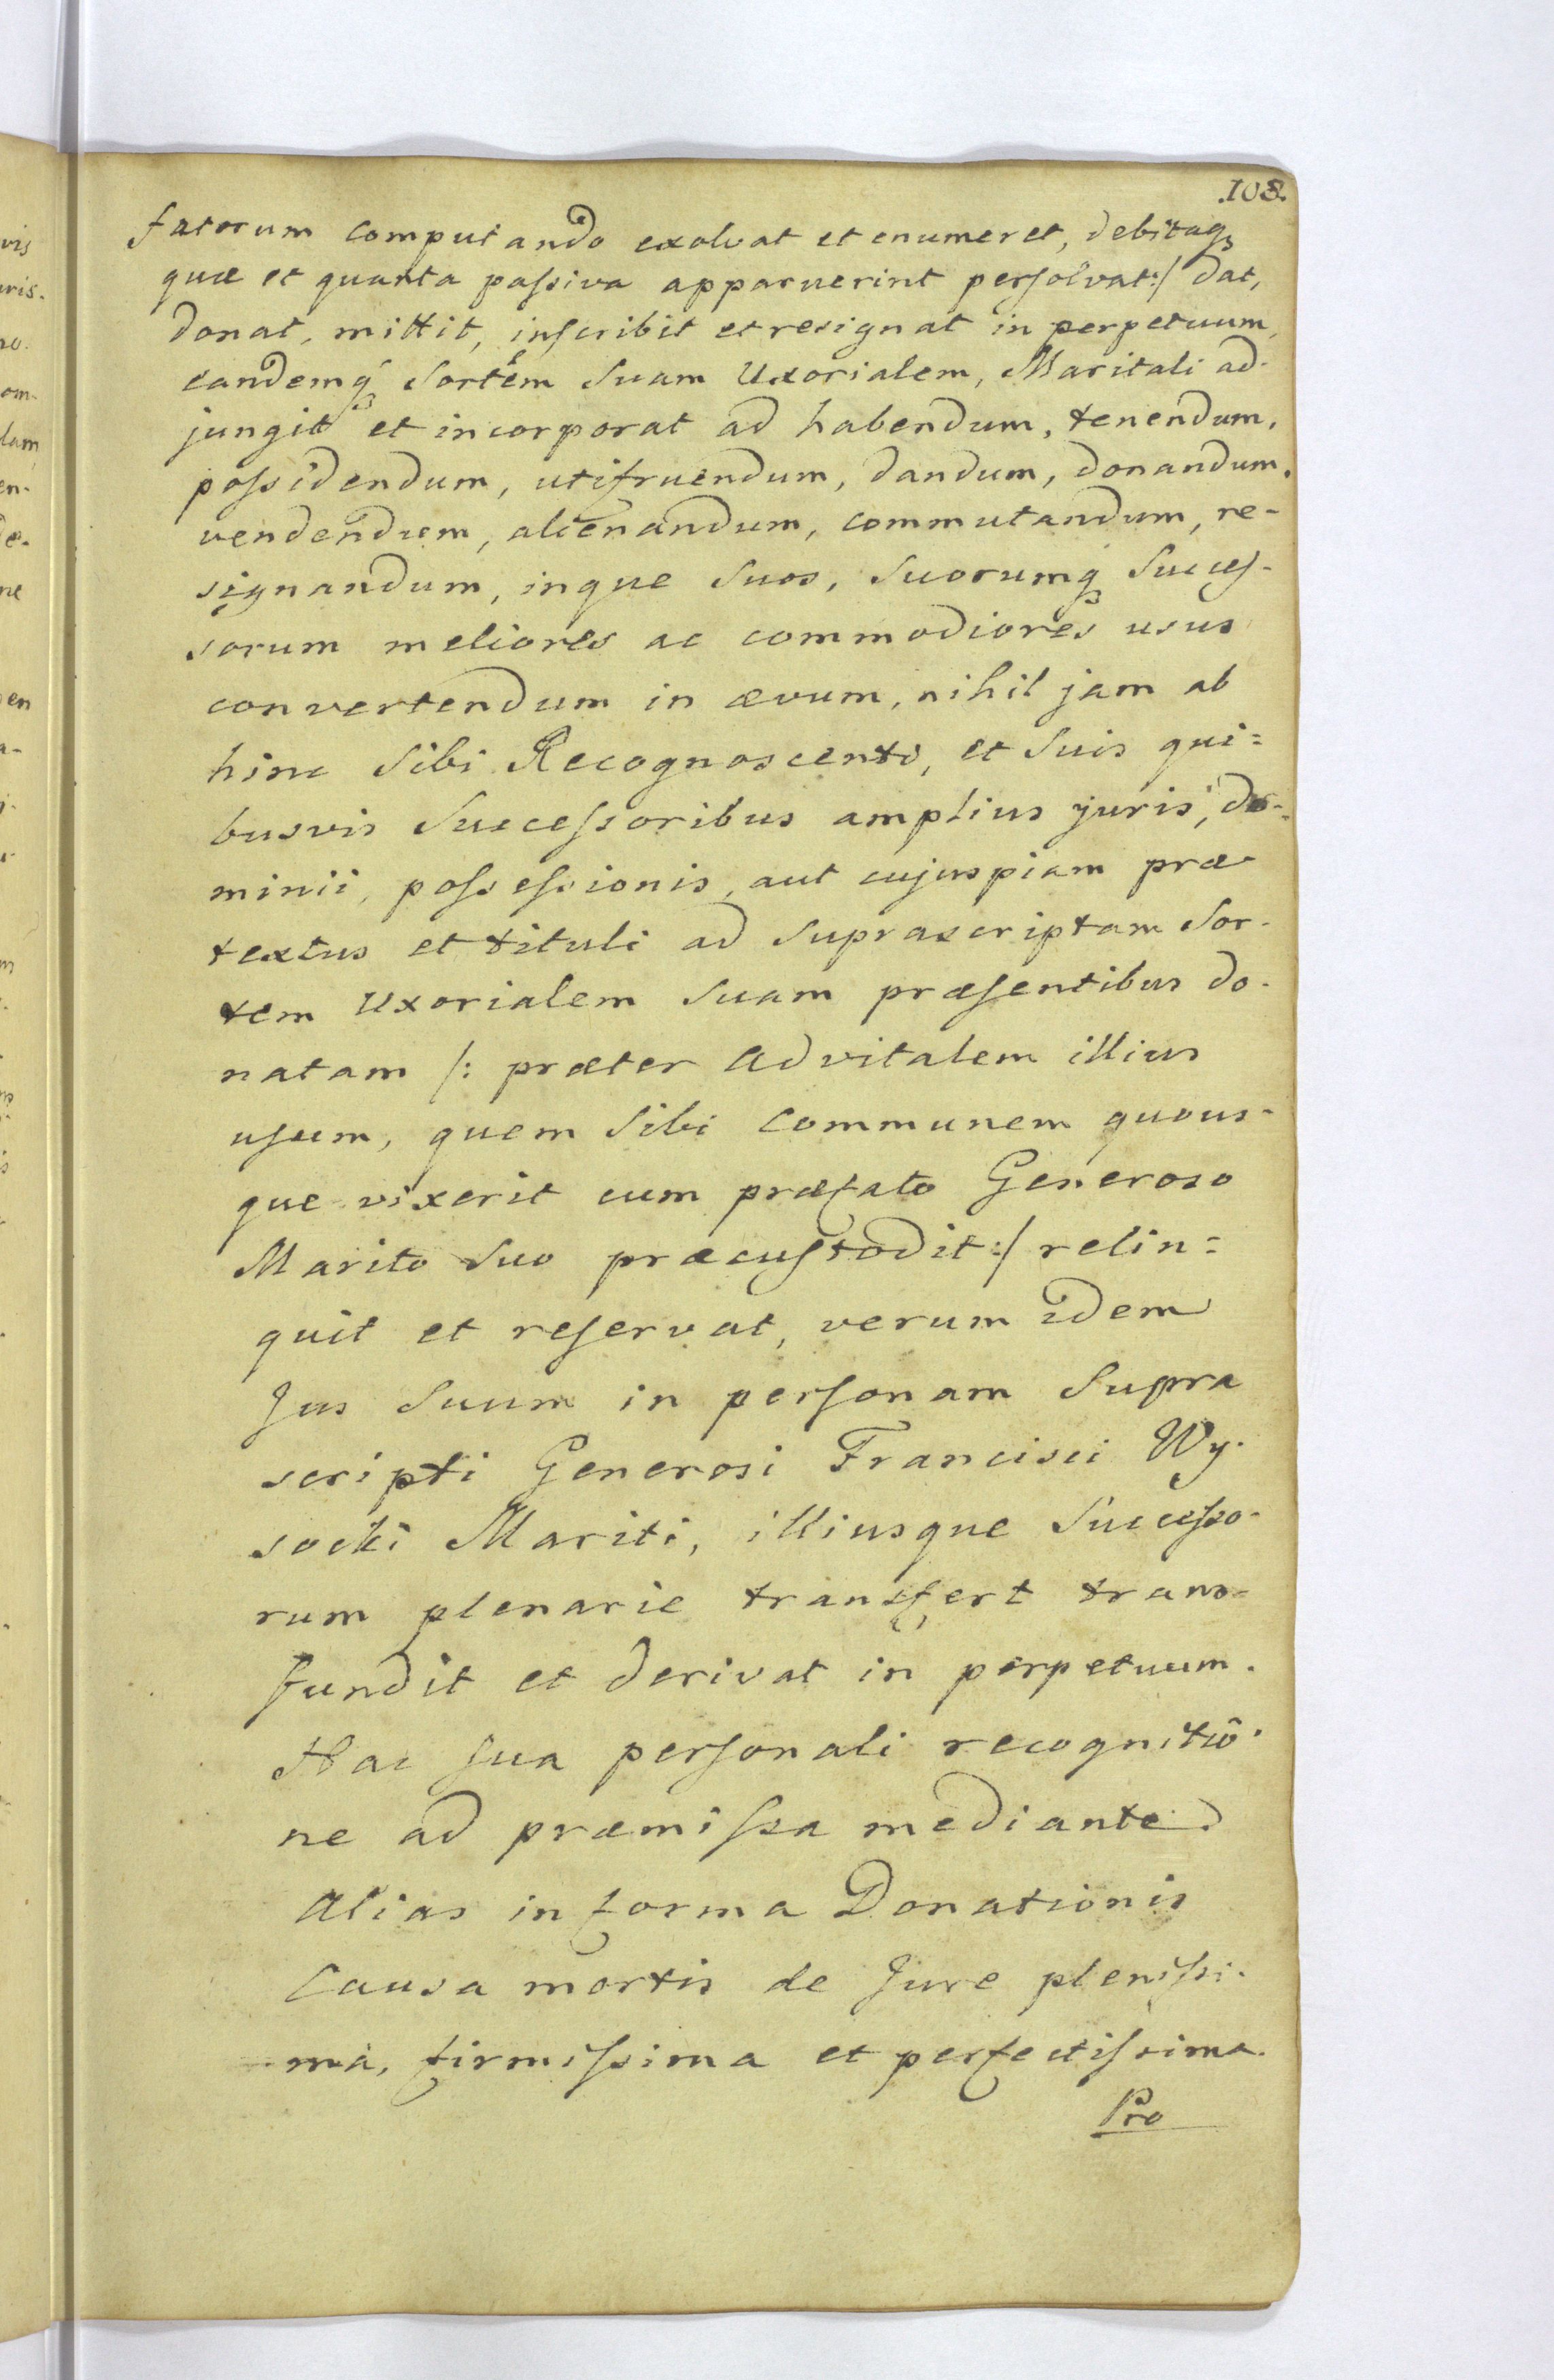 .103.
fatorum computando exolvat et enumeret, debitaqꝫ
quæ et quanta passiva apparuerint persolvat:/ dat,
donat, mittit, inscribit et resignat in perpetuum,
eandemqꝫ Sortem Suam Uxorialem, Maritali ad-
jungit et incorporat ad habendum, tenendum,
possidendum, utifruendum, dandum, donandum,
vendendum, alienandum, commutandum, re-
signandum, inque Suos, Suorumqꝫ Succes-
sorum meliores ac commodiores usus
convertendum in ævum, nihil jam ab
hinc Sibi Recognoscenti, et Suis qui=
busvis Successoribus amplius juris, do-
minii, possessionis, aut cujuspiam præ
textus et tituli ad Suprascriptam Sor-
tem Uxorialem Suam præsentibus do-
natam /: præter advitalem illius
usum, quem Sibi Communem quous-
que vixerit cum præfato Generoso
Marito Suo præcustodit:/ relin=
quit et reservat, verum idem
Jus Suum in personam Supra
scripti Generosi Francisci Wy-
socki Mariti, illiusque Successo-
rum plenarie transfert trans-
fundit et derivat in perpetuum.
Hac sua personali recognitiô-
ne ad præmissa mediante.
Alias in forma Donationis
Causa mortis de Jure plenissi-
ma, firmissima et perfectissima.
Pro
vis
uris.
no.
om-
lam
en-
de-
ne
en
a-